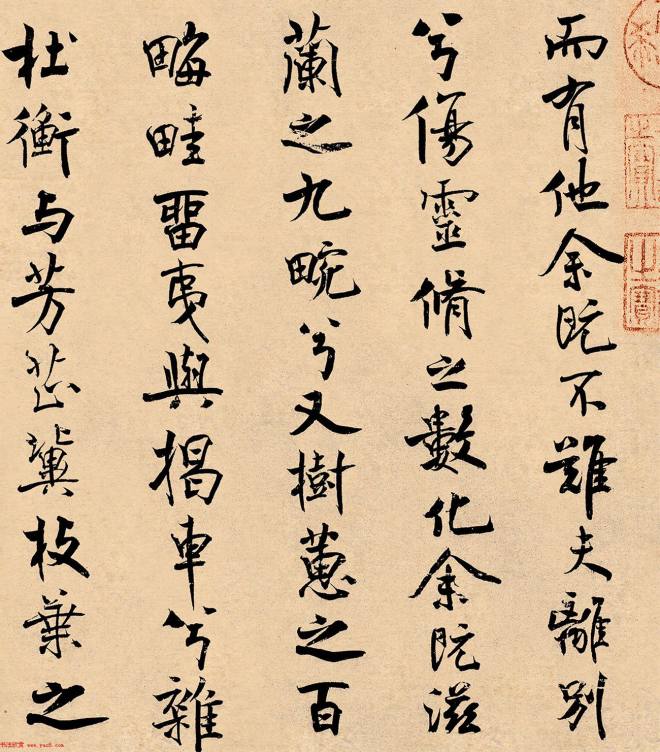 而有他余既不難夫離別
兮傷靈脩之數化余既滋
蘭之九畹兮又樹蕙之百
畮畦畱夷與揭車兮雜
杜衡与芳芷冀枝葉之
书法欣赏 www.yac8.com